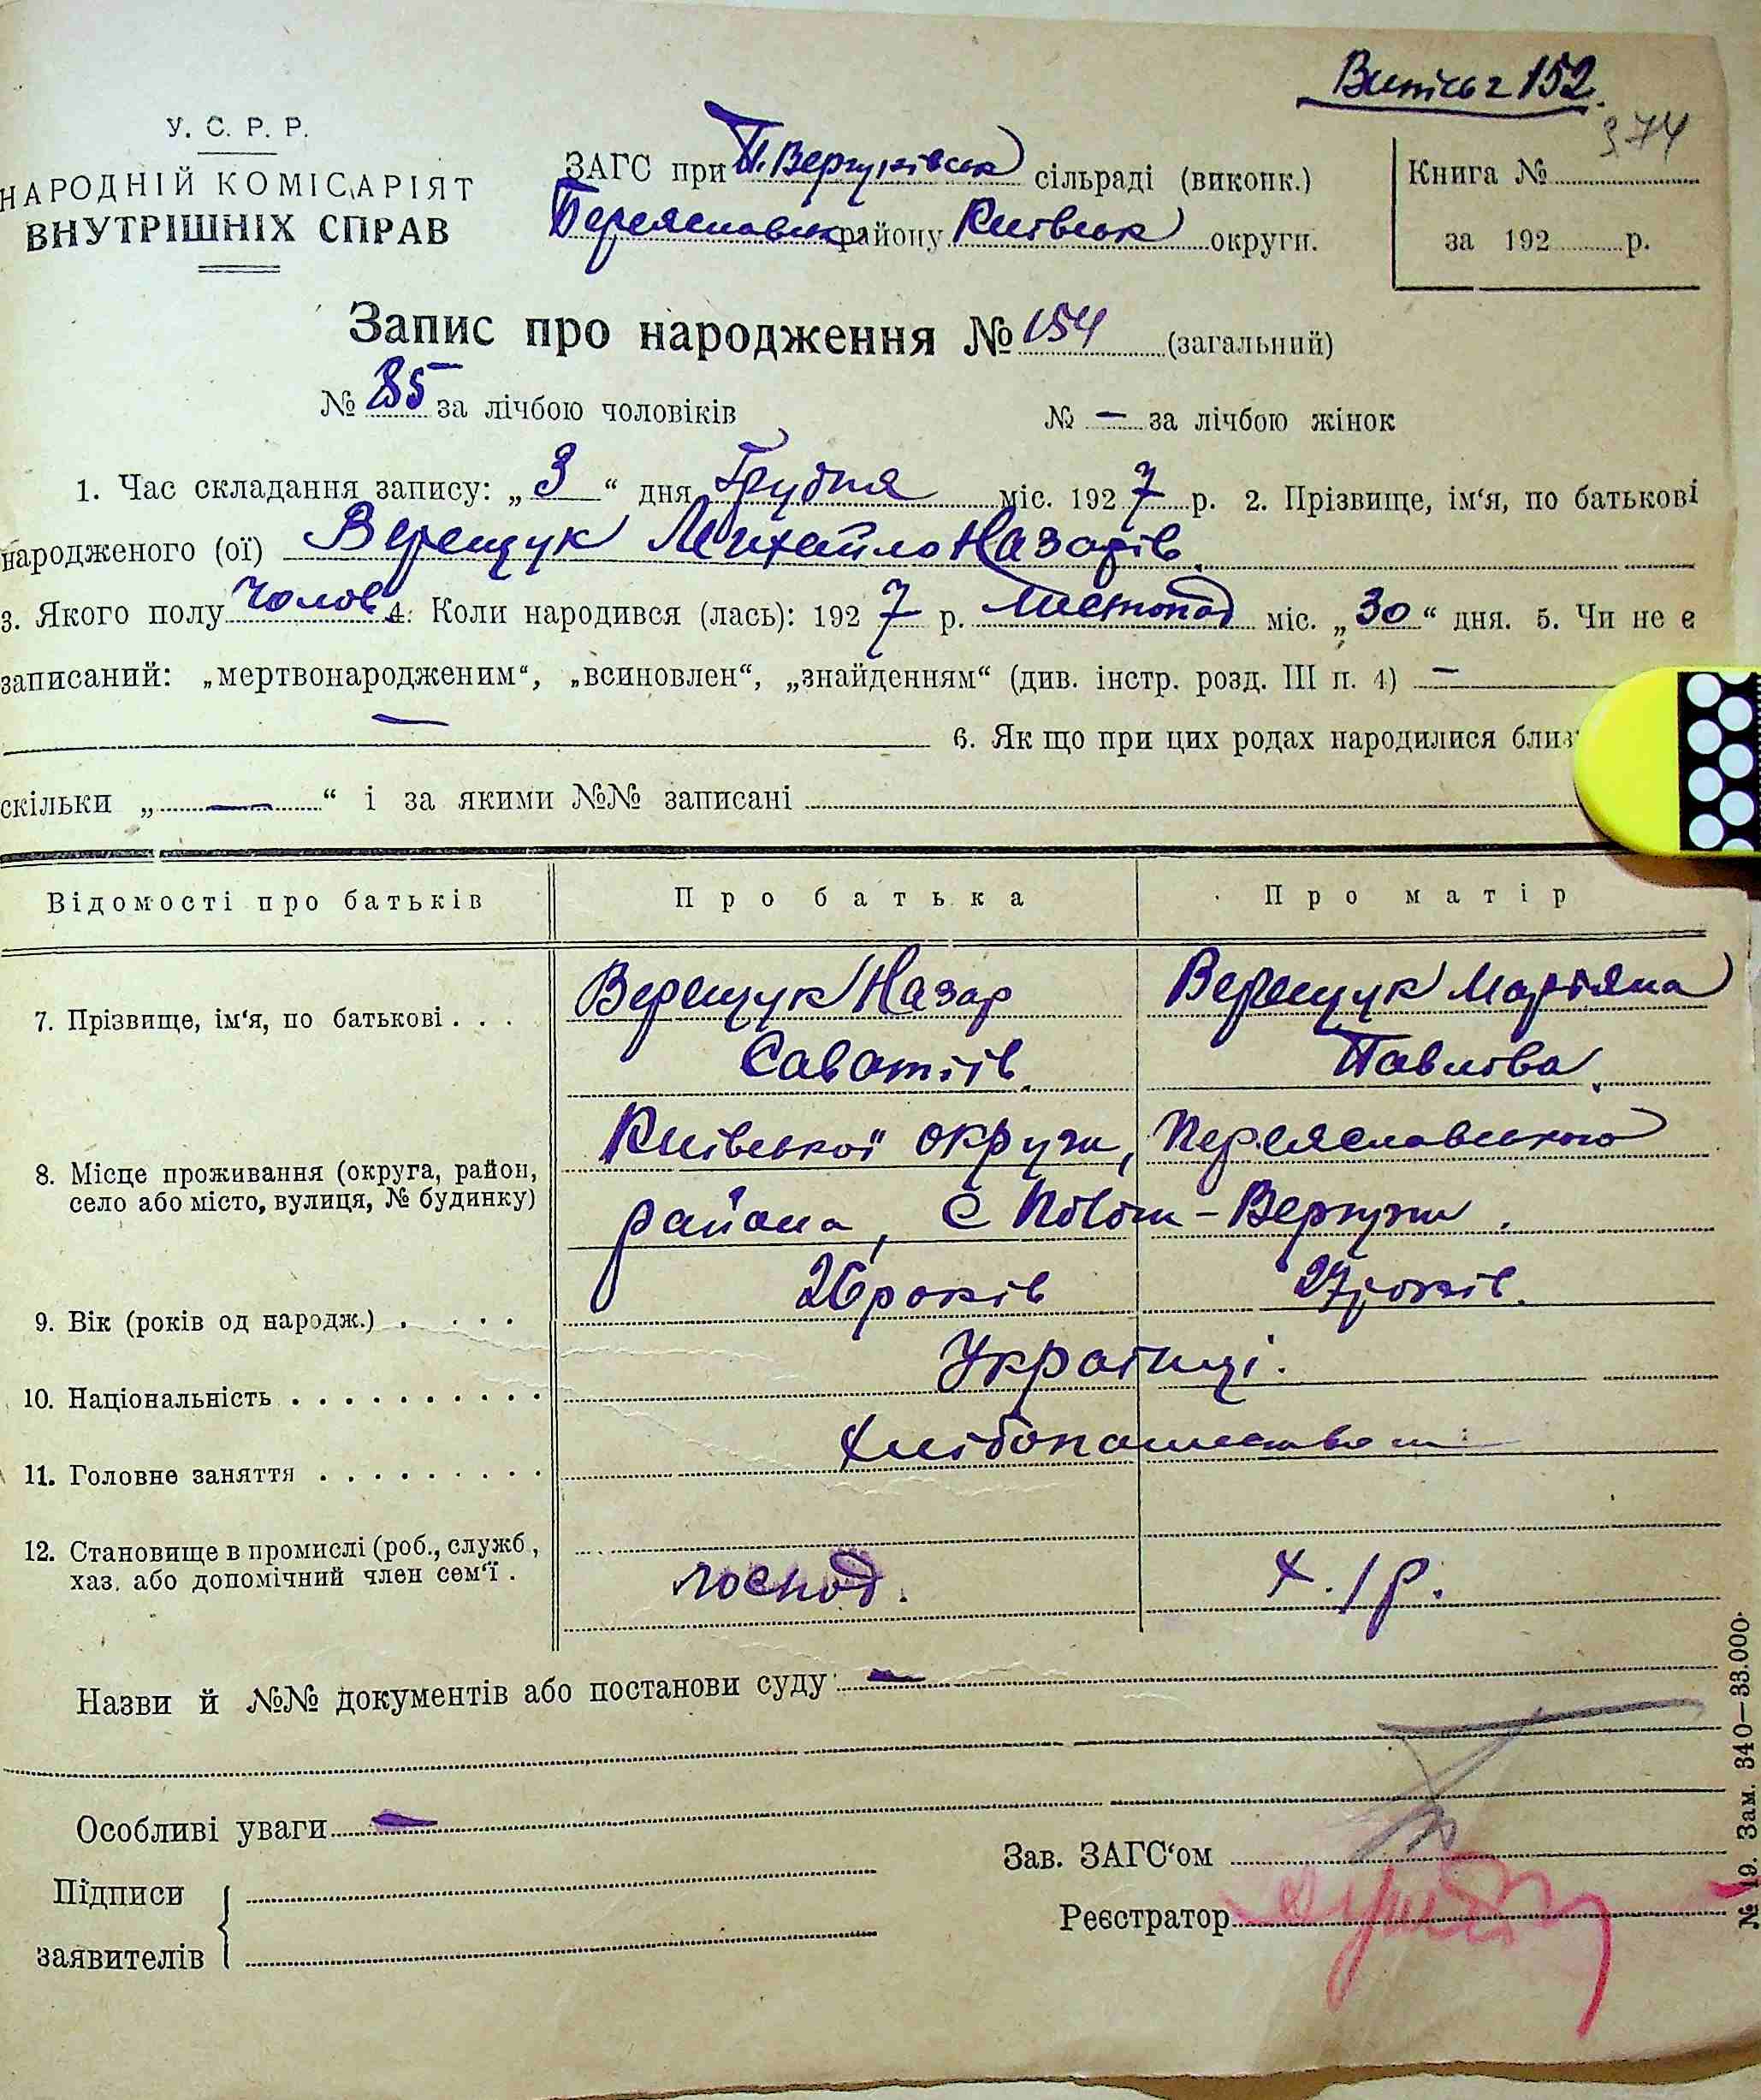 Витісь 2 152.
374
У. С. Р. Р.
НАРОДНІЙ КОМІСАРІЯТ
ВНУТРІШНІХ СПРАВ
ЗАГС при П. Вергунівськ сільраді (виконк.)
Переяславськ району Київськ округи.
Книга №
за 192 р.
Запис про народження № 154 (загальний)
№ 85 за лічбою чоловіків № — за лічбою жінок
1. Час складання запису: „3“ дня Грудня міс. 1927 р. 2. Прізвище, ім‘я, по батькові
народженого (ої) Верещук Михайло Назарів.
3. Якого полу Чолов 4. Коли народився (лась): 1927 р. Листопад міс. „30“ дня. 5. Чи не є
записаний: „мертвонародженим“, „всиновлен“, „знайденням“ (див. інстр. розд. III п. 4) —
— 6. Як що при цих родах народилися близ
скільки „—“ і за якими №№ записані
Відомості про батьків Про батька Про матір
7. Прізвище, ім‘я, по батькові . . . Верещук Назар Саватіїв. Верещук Маріяна Павлова.
8. Місце проживання (округа, район,
село або місто, вулиця, № будинку)
Київської округи, Переяславського
района, с Пологи-Вергуни.
9. Вік (років од народж.) . . . . 26 років 27 років.
10. Національність . . . . . . . . . . Українці.
11. Головне заняття . . . . . . . . .
12. Становище в промислі (роб., служб.,
хаз. або допомічний член сем‘ї . господ. х./р.
Назви й №№ документів або постанови суду —
Особливі уваги —
Підписи
заявителів
Зав. ЗАГС‘ом
Реєстратор
№ 19. Зам. 340—33.000.